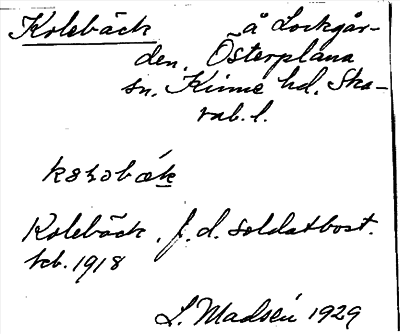 Kolebäck å Lockgår-
den. Österplana
sn. Kinne hd. Ska-
rab. l.
Kolebäck, f. d. soldatbost.
kb. 1918
L. Madsén 1929